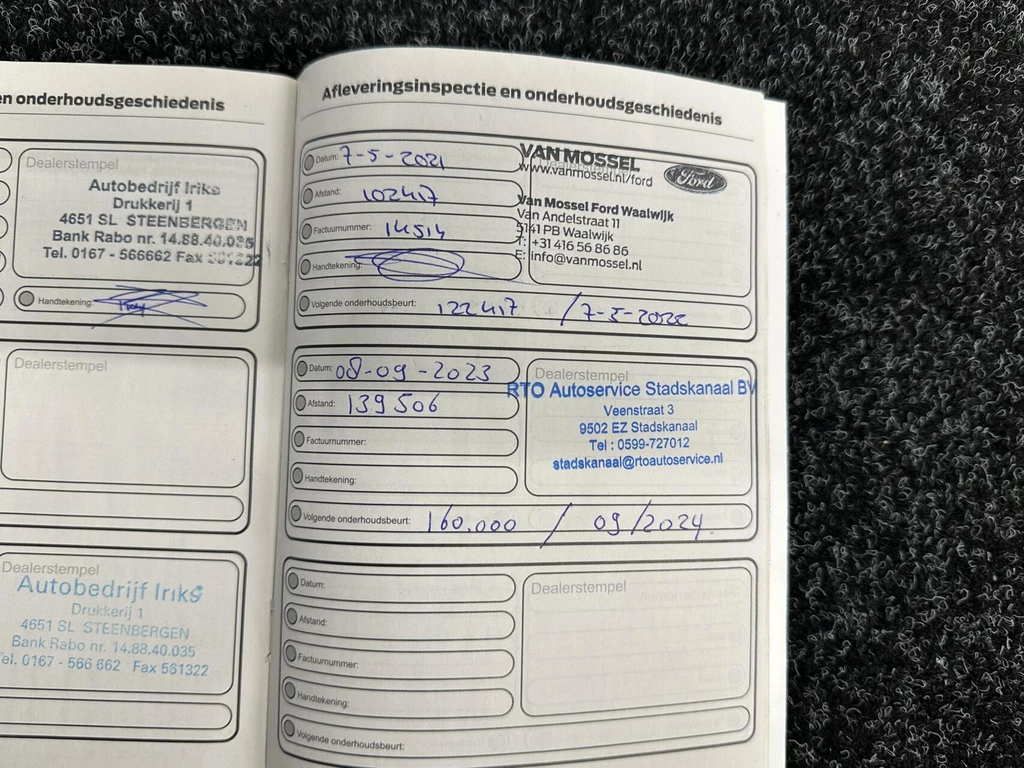 en onderhoudsgeschiedenis
Dealerstempel
Autobedrijf Iriks
Drukkerij 1
4651 SL STEENBERGEN
Bank Rabo nr. 14.88.40.035
Tel. 0167 - 566662 Fax 561322
Handtekening:
Dealerstempel
Dealerstempel
Autobedrijf Iriks
Drukkerij 1
4651 SL STEENBERGEN
Bank Rabo nr. 14.88.40.035
el. 0167 - 566 662 Fax 561322
Afleveringsinspectie en onderhoudsgeschiedenis
Datum: 7-5-2021
Afstand: 102417
Factuurnummer: 14514
Handtekening:
VAN MOSSEL
www.vanmossel.nl/ford
Ford
Van Mossel Ford Waalwijk
Van Andelstraat 11
5141 PB Waalwijk
T: +31 416 56 86 86
E: info@vanmossel.nl
Volgende onderhoudsbeurt: 122417 / 7-5-2022
Datum: 08-09-2023
Afstand: 139506
Factuurnummer:
Handtekening:
Dealerstempel
RTO Autoservice Stadskanaal BV
Veenstraat 3
9502 EZ Stadskanaal
Tel : 0599-727012
stadskanaal@rtoautoservice.nl
Volgende onderhoudsbeurt: 160.000 / 09/2024.
Datum:
Afstand:
Factuurnummer:
Handtekening:
Dealerstempel
Volgende onderhoudsbeurt: